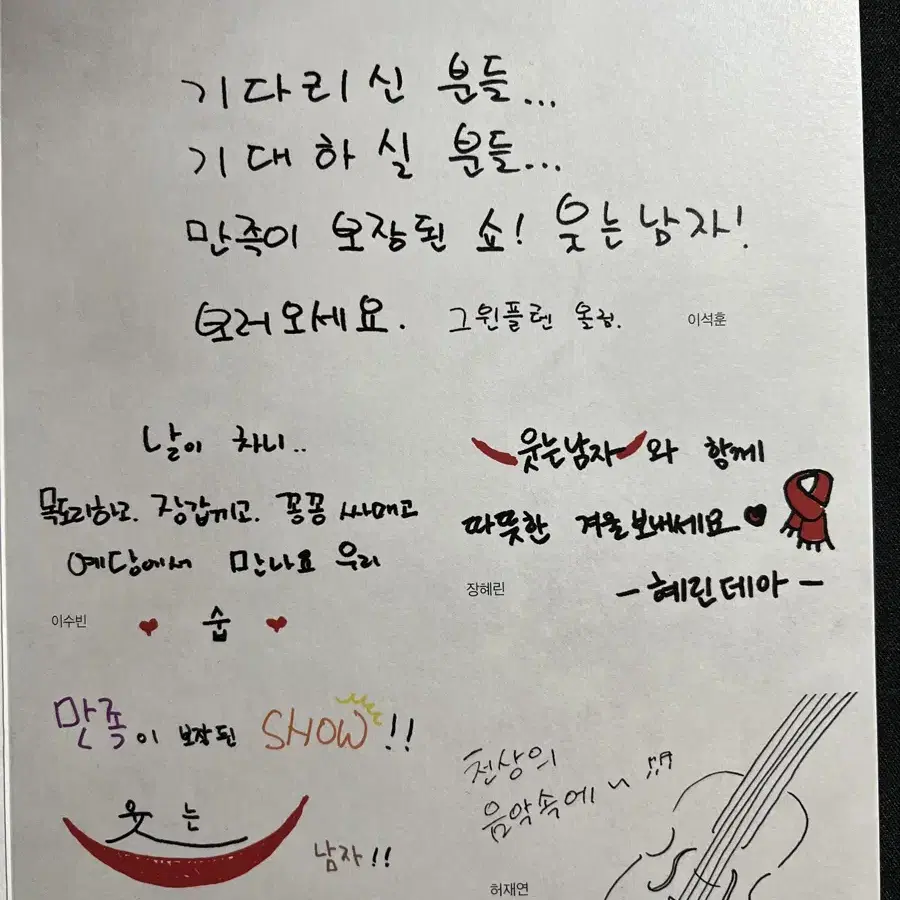 기다리신 분들...
기대하실 분들...
만족이 보장된 쇼! 웃는남자!
보러오세요. 그윈플렌 올림.
이석훈
날이 차니..
목도리하고. 장갑끼고. 꽁꽁 싸매고
예당에서 만나요 우리
이수빈
숩
웃는남자와 함께
따뜻한 겨울보내세요
장혜린
-혜린데아-
만족이 보장된 SHOW!!
웃는
남자!!
천상의
음악속에~
허재연